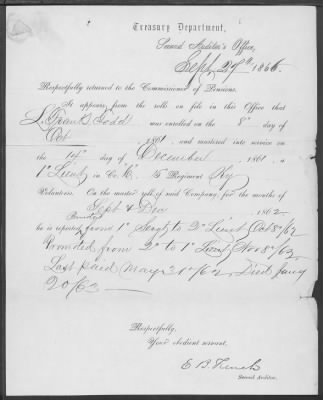 Treasury Department,
Second Auditor's Office,
Sept 27th 1866
Respectfully returned to the Commissioner of Pensions.
It appears from the rolls on file in this Office that
L. Frank Todd was enrolled on the 8th day of
Oct 1861, and mustered into service on
the 14th day of December 1861, a
1st Lieut in Co. C. 15 Regiment Ky
Volunteers. On the muster roll of said Company, for the months of
Sept & Dec 1862
he is reported from 1st Sergt to 2d Lieut Oct 8/62
Promoted from 2d to 1st Lieut Nov 8/62
Last paid May 31st/62, Died Jany
20/63
Respectfully,
Your obedient servant,
E B French
Second Auditor.